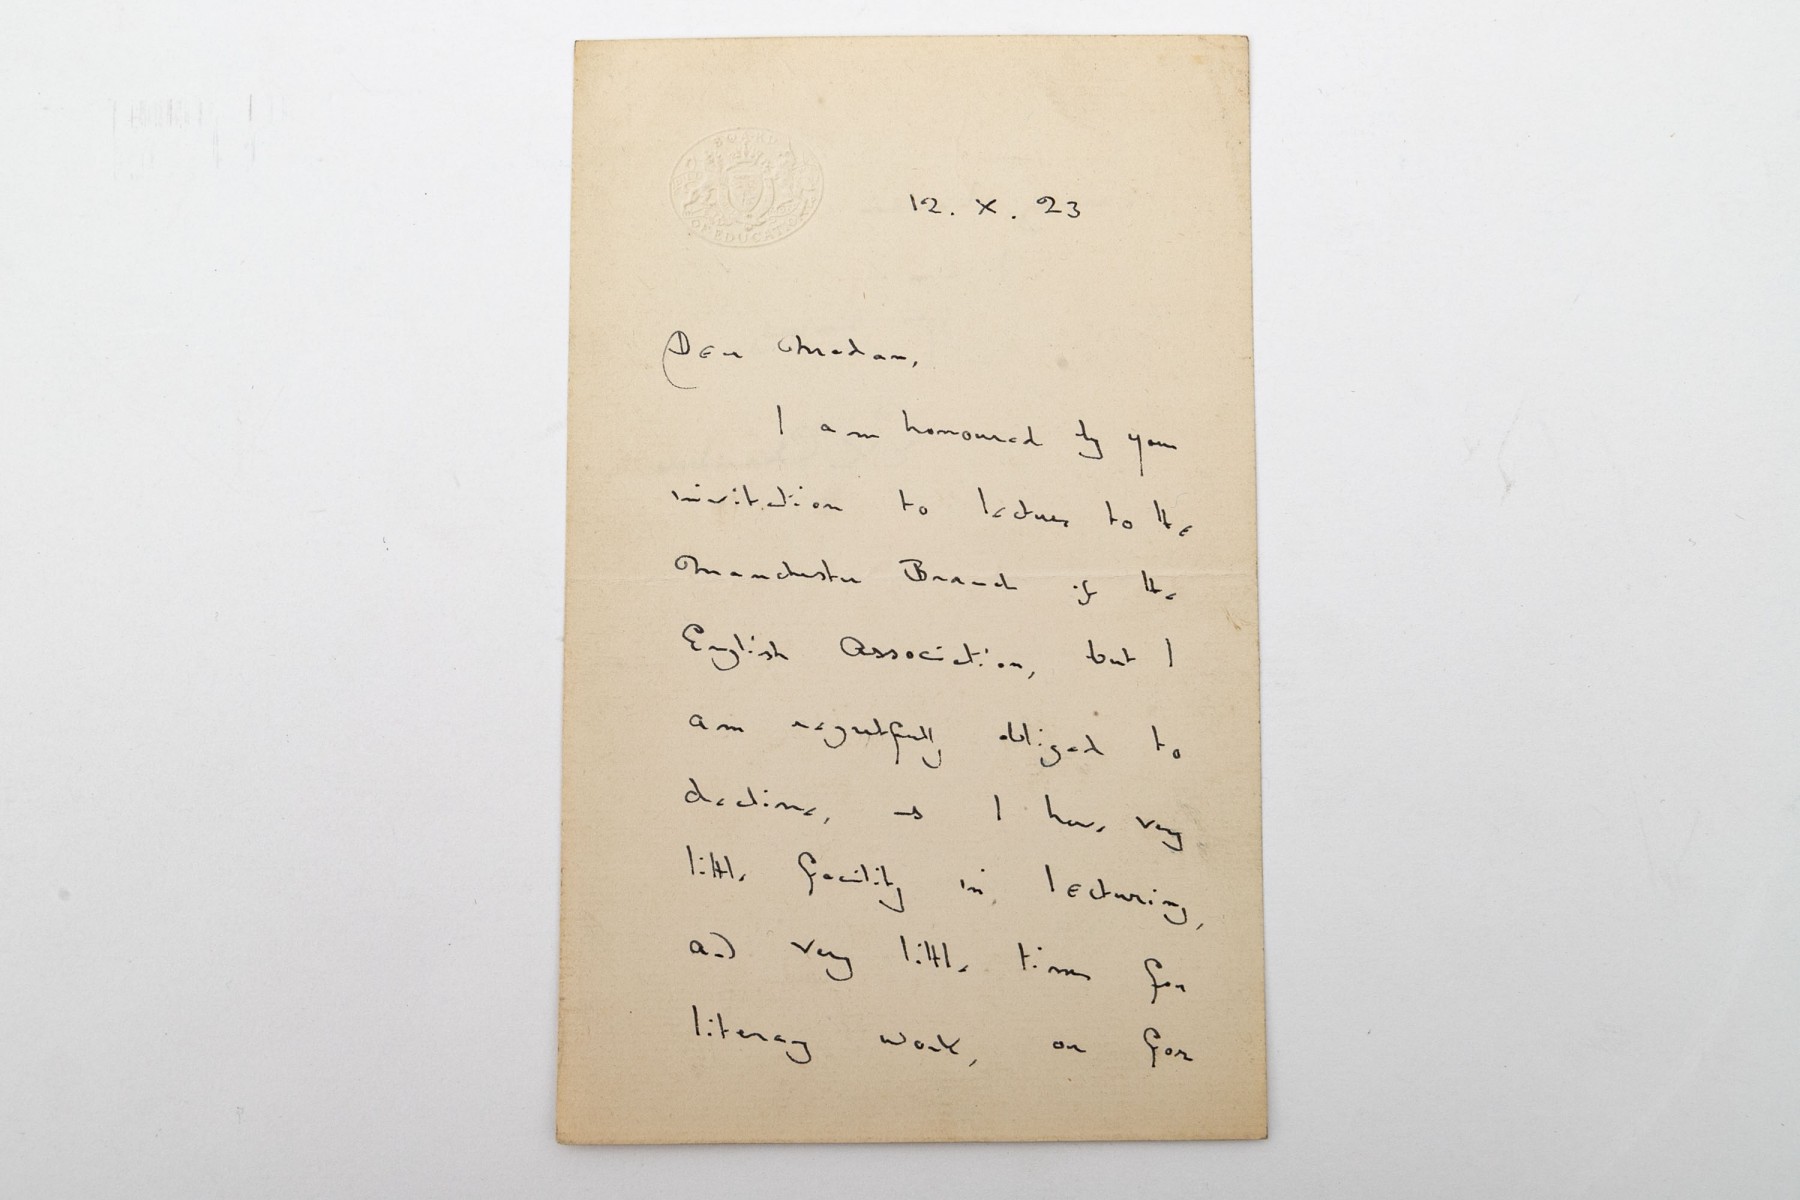 BOARD
OF EDUCATION
12. X. 23
Dear Madam,
I am honoured by your
invitation to lecture to the
Manchester Branch of the
English Association, but I
am regretfully obliged to
decline, as I have very
little facility in lecturing,
and very little time for
literary work, or for